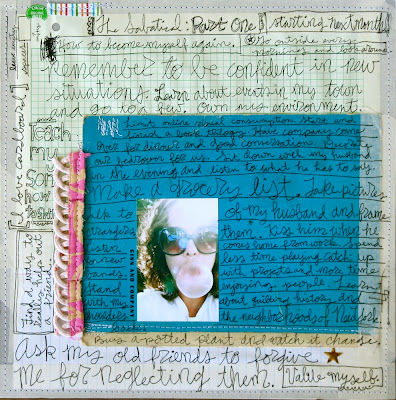 The Sabatical: Part One
starting next month
How to become myself again.
Go outside every
mornings and look around.
Remember to be confident in new
situations. Learn about events in my town
and go to a few. Own my environment.
I love cardboard
Teach
my
son
how
to
Limit entire visual consumption. Start and
finish a book trilogy. Have company come
over for dinner and good conversations.
our bedroom for us. Sit down with my husband
in the evening and listen to what he has to say.
Make a grocery list. Take pictures
talk to
strangers
listen
to new
bands.
Stand
with my
shoulders
back.
of my husband and frame
them. Kiss him when he
comes home from work. Spend
less time playing catch up
with projects and more time
enjoying people. Learn
about quilting history and
the neighborhoods of New York
KISS AND COMPANY
Find a way to
really help out
a friend.
Buy a potted plant and watch it change.
Ask my old friends to forgive
me for neglecting them.
Value myself.